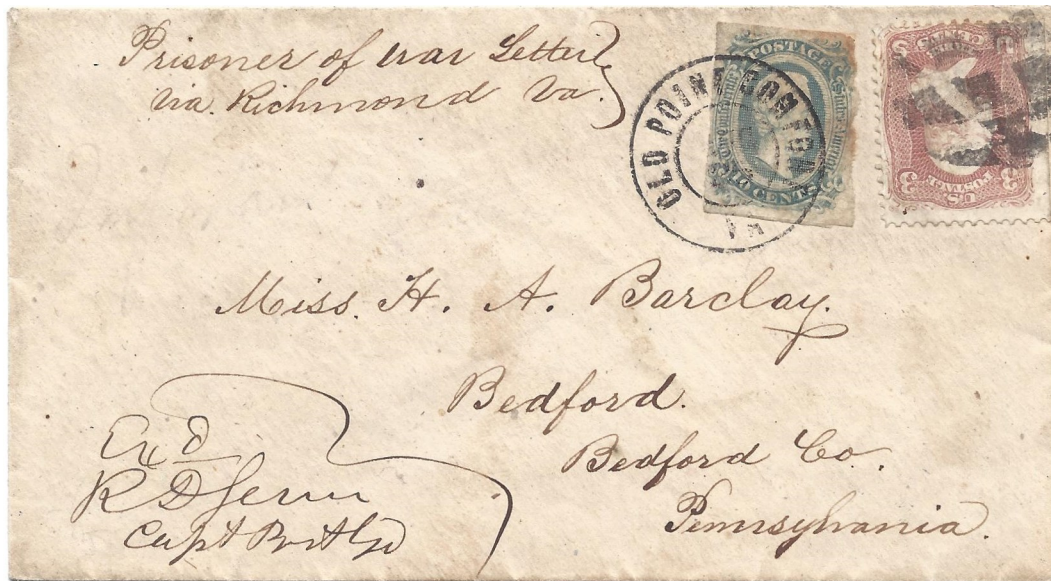 Prisoner of war Letter
via Richmond Va.
OLD POINT COMFORT
VA
POSTAGE
TEN CENTS
3 3
U.S. POSTAGE
Miss. H. A. Barclay.
Bedford.
Bedford Co.
Pennsylvania.
Exd
Capt